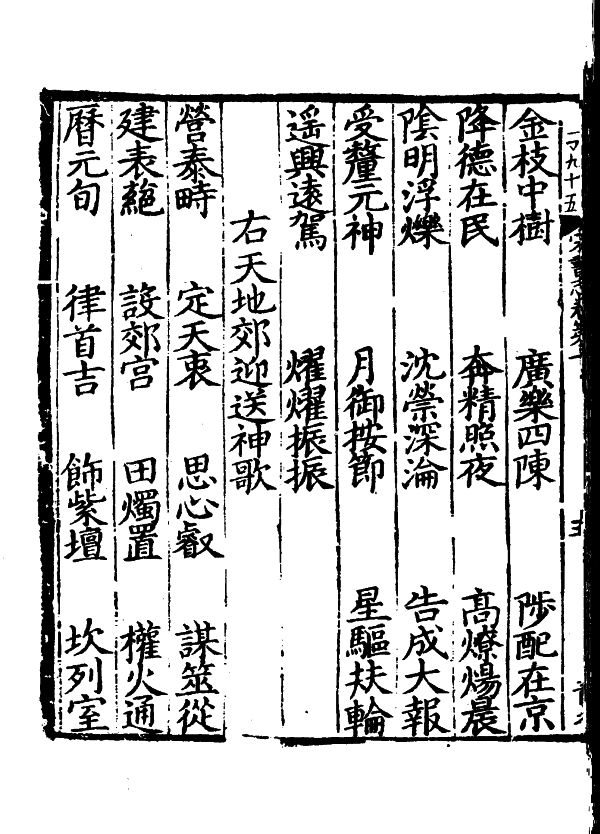 金枝中樹 廣樂四陳 陟配在京
降德在民 奔精照夜 髙燎煬晨
隂明浮爍 沈禜深淪 告成大報
受釐元神 月御按節 星驅扶輪
遥興遠駕 燿燿振振
右天地郊迎送神歌
營泰畤 定天衷 思心睿 謀筮從
建表蕝 設郊宮 田燭置 權火通
曆元旬 律首吉 飾紫壇 坎列室